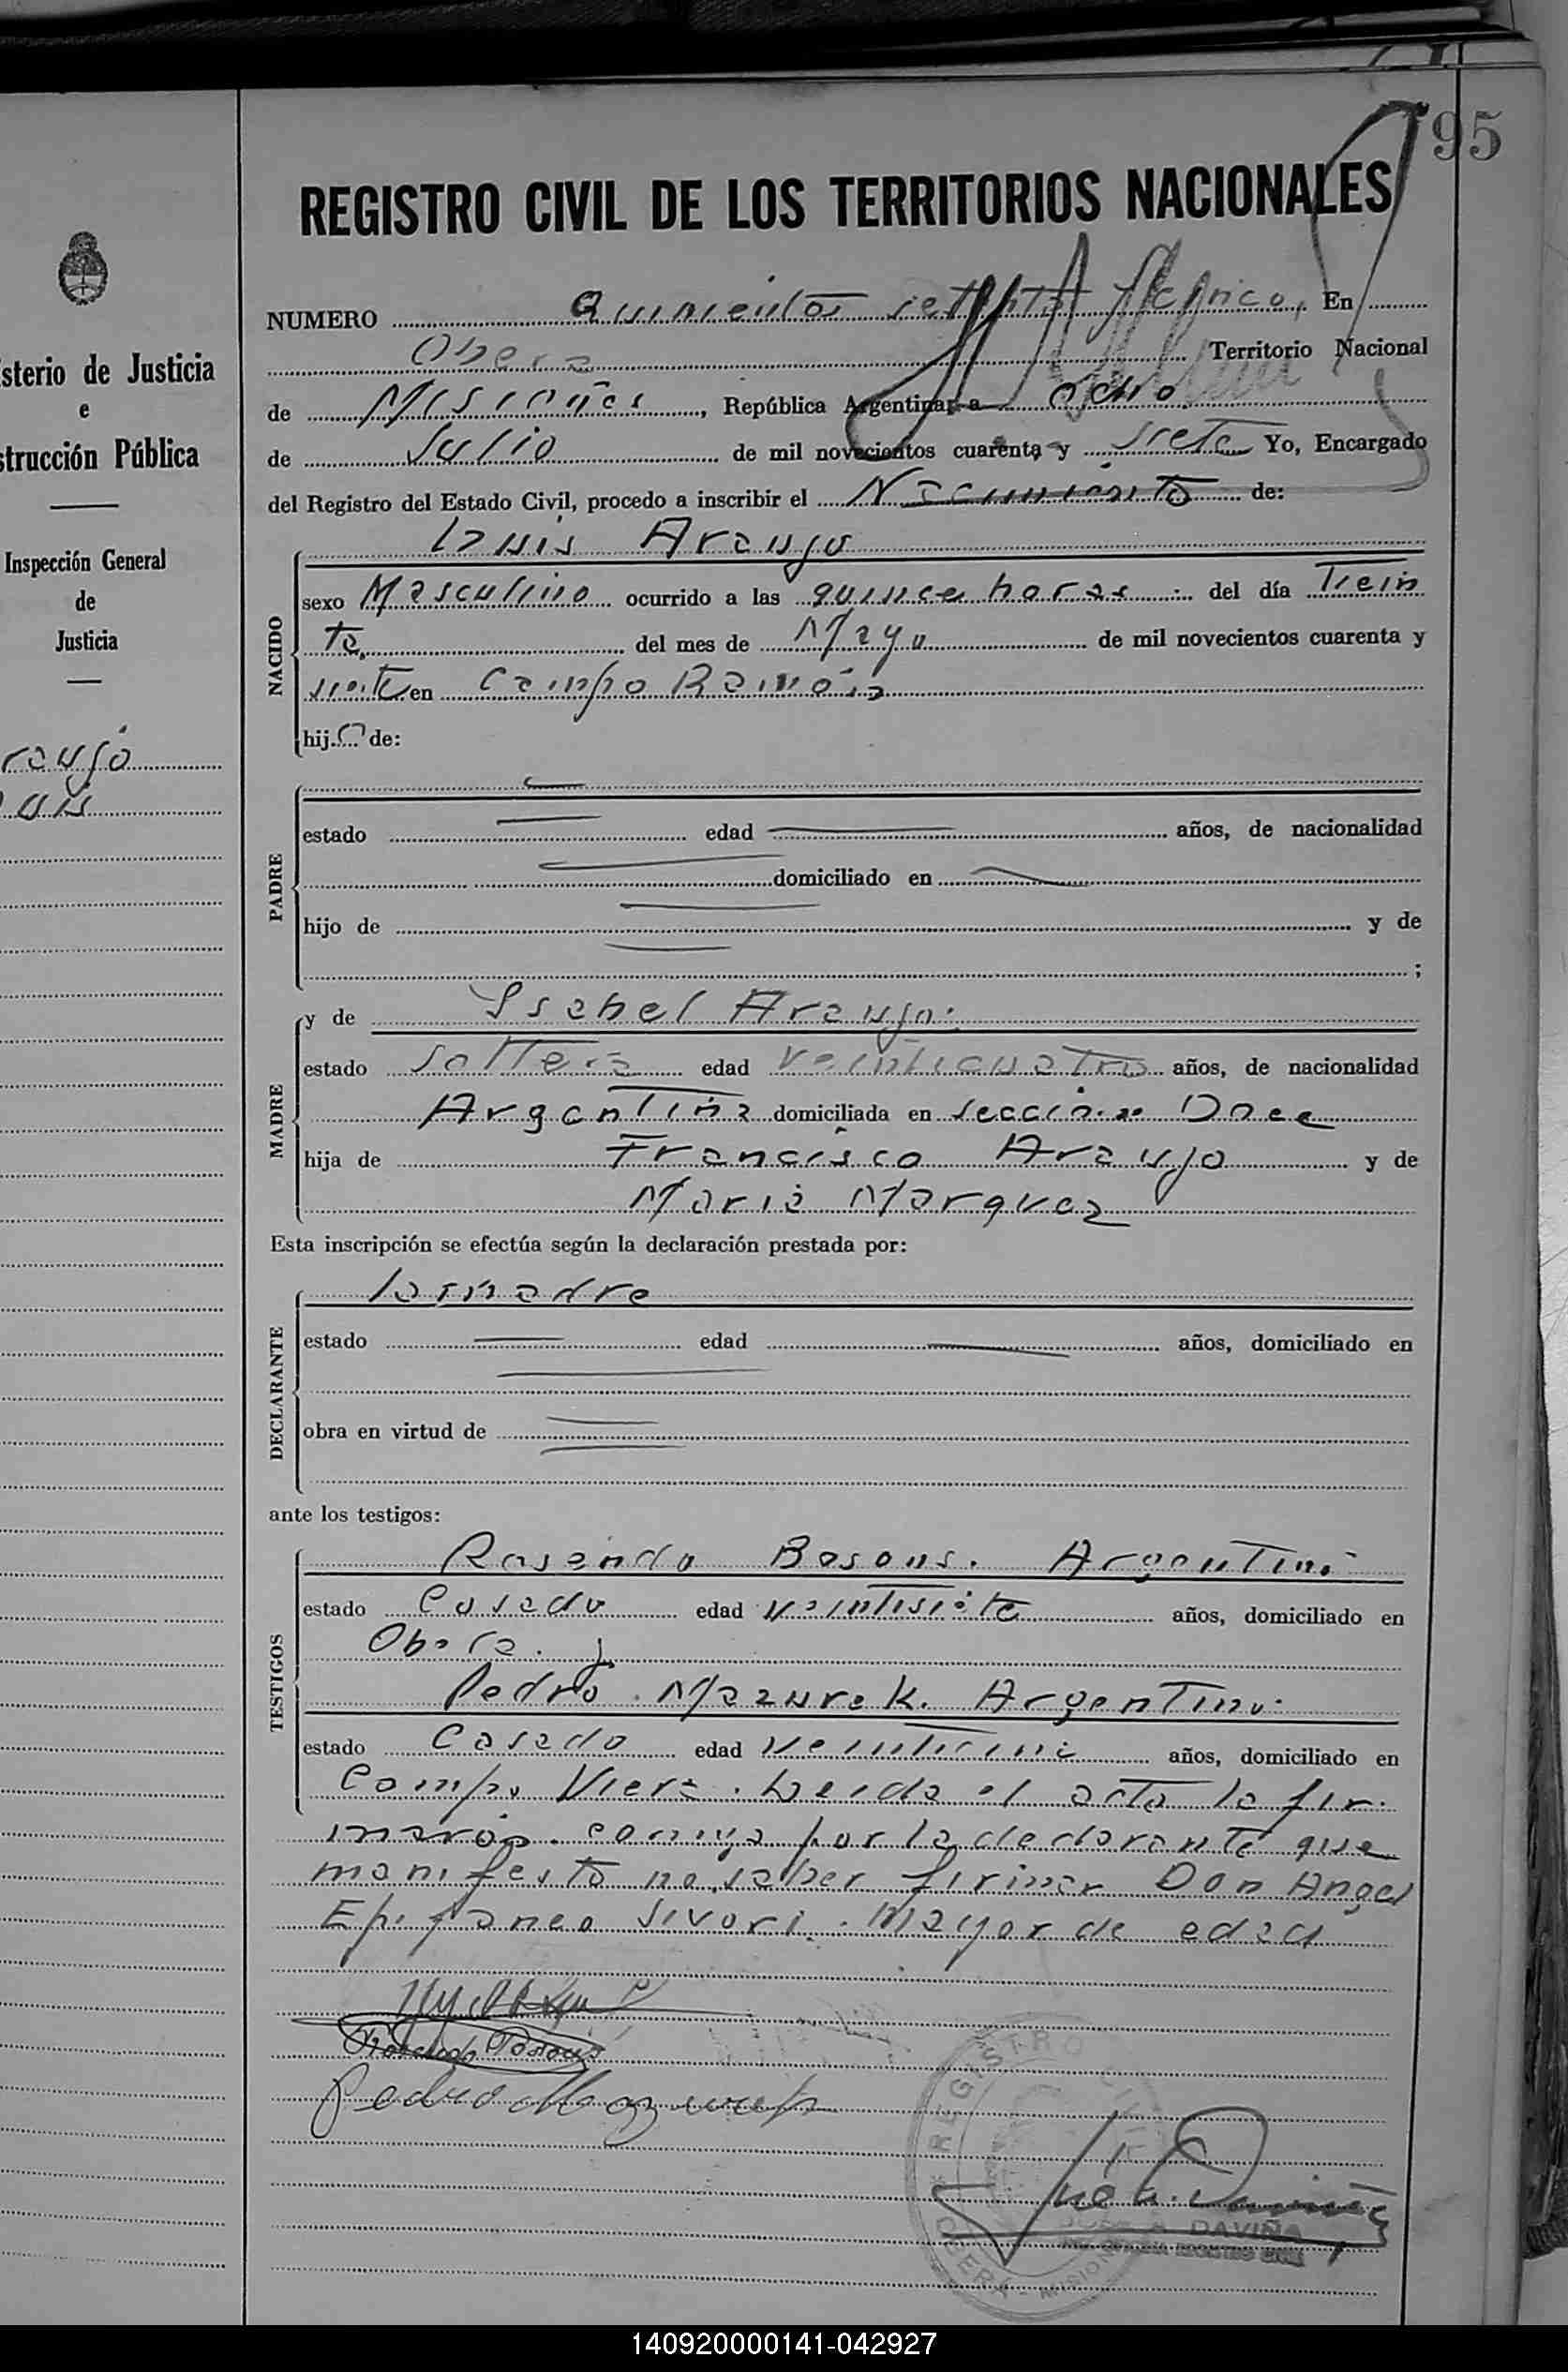 95
REGISTRO CIVIL DE LOS TERRITORIOS NACIONALES
NUMERO Quinientos setenta y cinco, En
Obera Territorio Nacional
de Misiones, República Argentina, a ocho
de Julio de mil novecientos cuarenta y siete Yo, Encargado
del Registro del Estado Civil, procedo a inscribir el Nacimiento de:
NACIDO
Luis Araujo
sexo Masculino ocurrido a las quince horas del día Trein
ta. del mes de Mayo de mil novecientos cuarenta y
siete en Campo Ramón
hijo de:
PADRE
estado edad años, de nacionalidad
domiciliado en
hijo de y de
;
MADRE
y de Ysabel Araujo.
estado soltera edad veinticuatro años, de nacionalidad
Argentina domiciliada en seccion Doce
hija de Francisco Araujo y de
Maria Marquez
Esta inscripción se efectúa según la declaración prestada por:
DECLARANTE
la madre
estado edad años, domiciliado en
obra en virtud de
ante los testigos:
TESTIGOS
Rosendo Argentino
estado Casado edad veintisiete años, domiciliado en
Obera. y
Pedro Mazurek. Argentino.
estado Casado edad años, domiciliado en
Campo Viera. Leida el acta la fir
maron. por la declarante que
manifesto no saber firmar Don Angel
Epifaneo Sivori. mayor de edad
Pedro Mazurek
REGISTRO CIVIL
OBERA - MISIONES
DAVIÑA
sterio de Justicia
e
strucción Pública
Inspección General
de
Justicia
raujo
uis
140920000141-042927